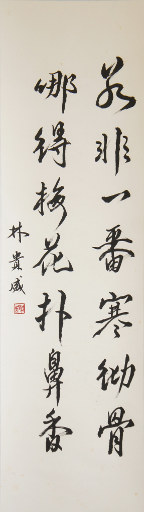 若非一番寒徹骨
哪得梅花扑鼻香
林貴威